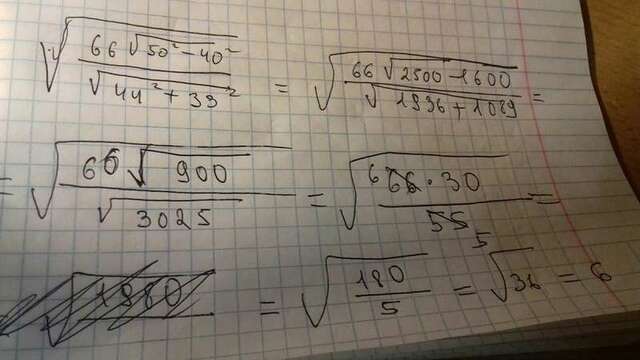 √(66√(50² − 40²) / √(44² + 33²)) = √(66√(2500 − 1600) / √(1936 + 1089)) =
= √(66√900 / √3025) = √(66 · 30 / 55) = 6 5
= √(180 / 5) = √36 = 6